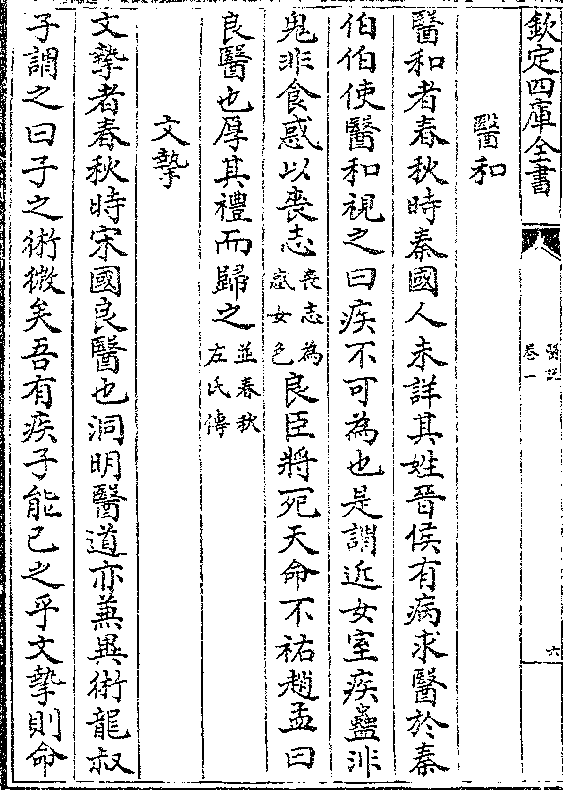 欽定四庫全書
醫說
卷一
六
醫和
醫和者春秋時秦國人未詳其姓晉侯有病求醫於秦
伯伯使醫和視之曰疾不可為也是謂近女室疾蠱非
鬼非食惑以喪志喪志為惑女色良臣將死天命不祐趙孟曰
良醫也厚其禮而歸之並春秋左氏傳
文摯
文摯者春秋時宋國良醫也洞明醫道亦兼異術龍叔
子謂之曰子之術微矣吾有疾子能已之乎文摯則命